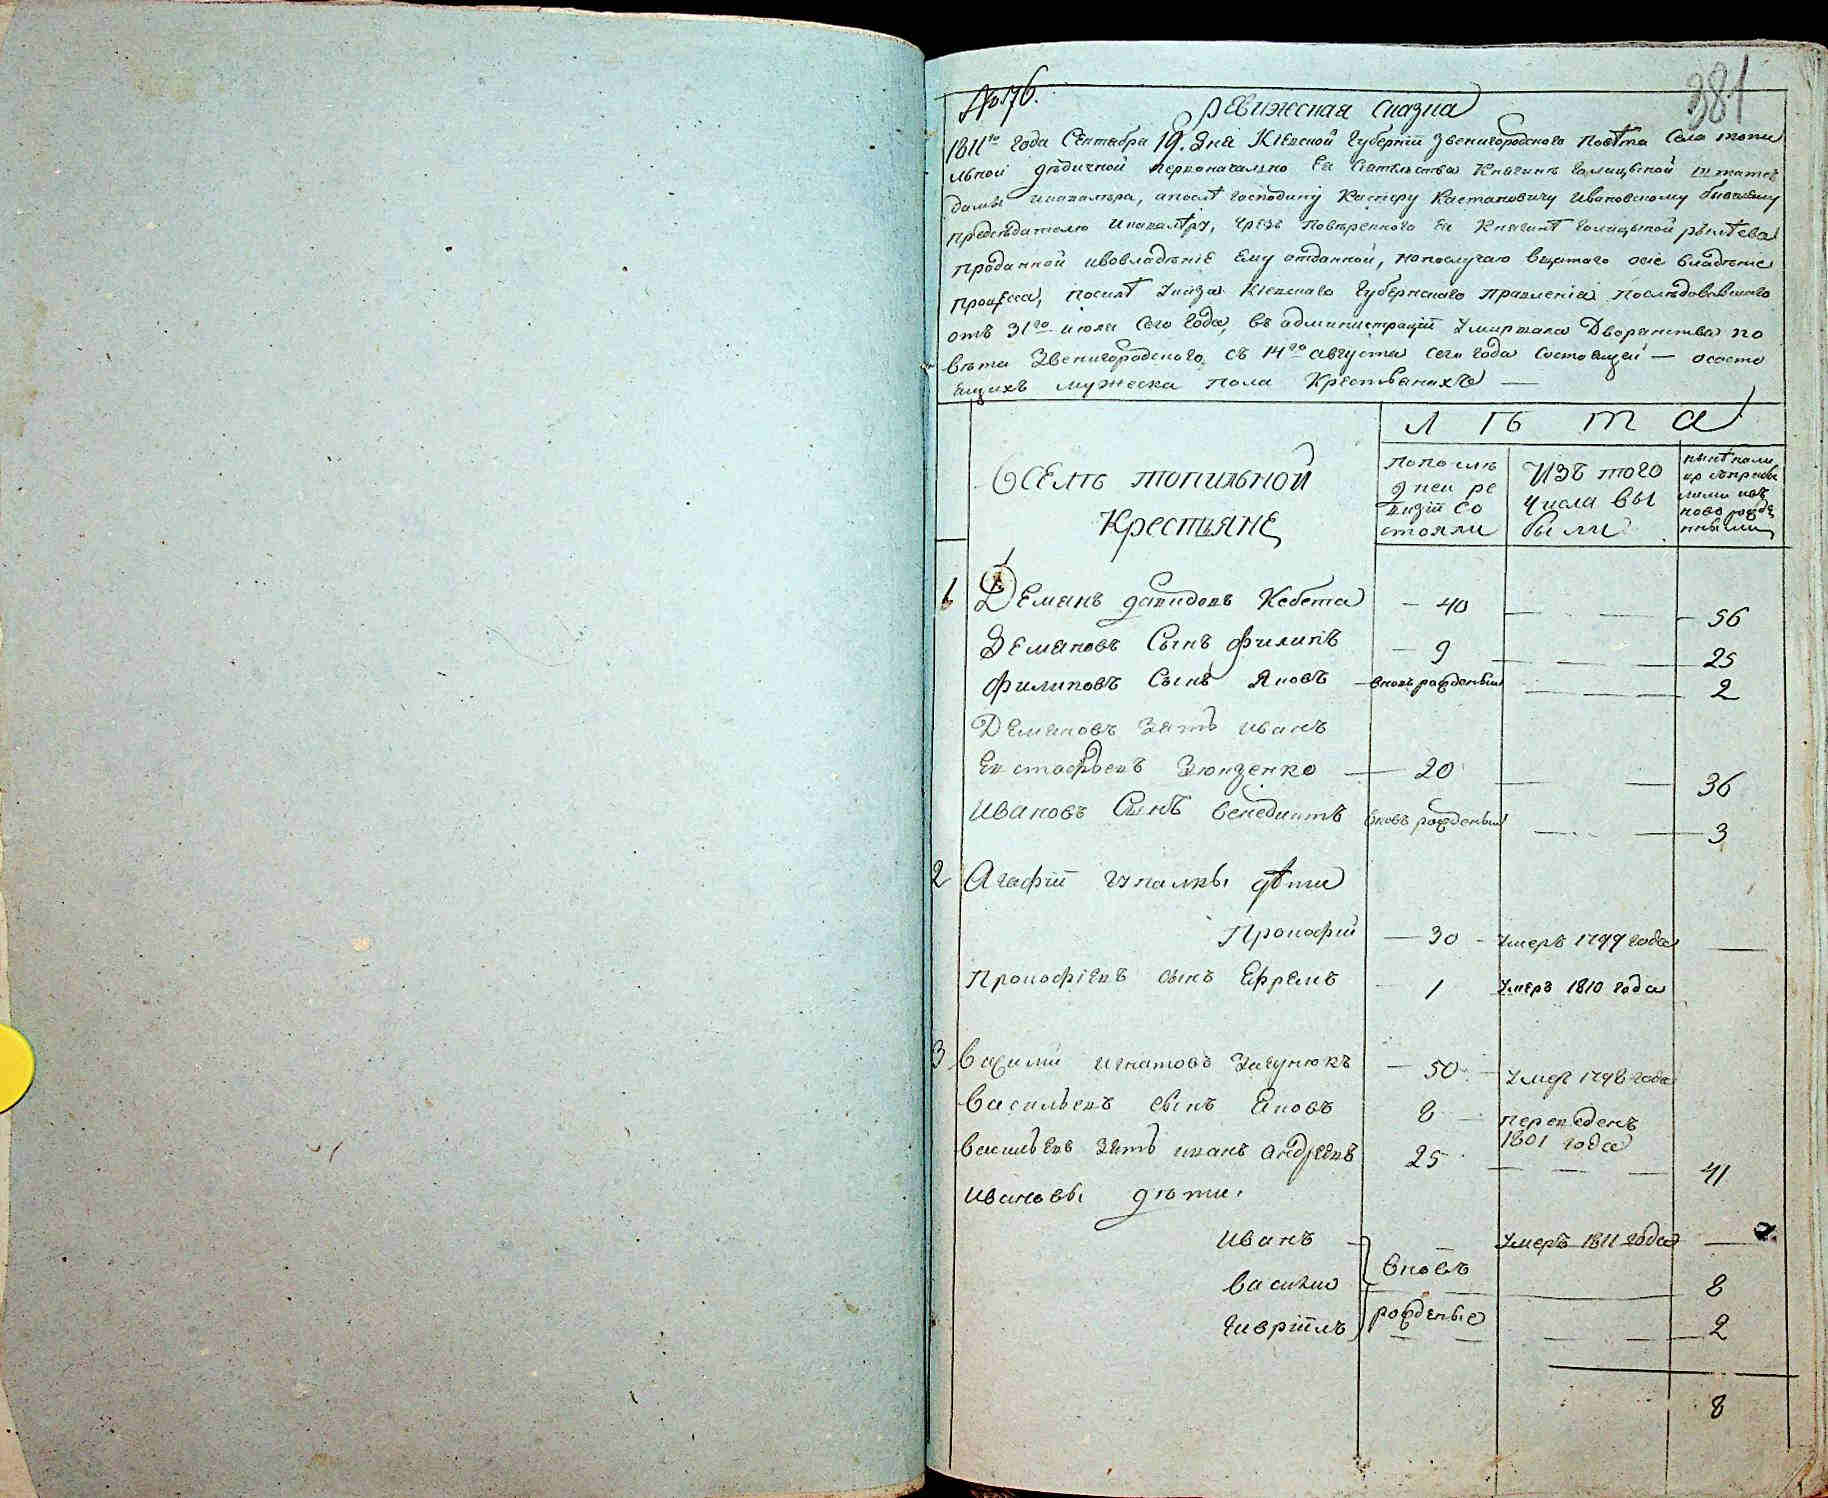 № 176.
381
Ревижская сказка
1811го года Сентября 19. дня Киевской Губернии Звенигородского Повѣта Села Топи
льной дѣдичной первоначально Ея Сиятельства Княгинѣ Голицыной штатсъ
дамы и кавалера, а послѣ господину Каетановичу Ивановскому бывшему
предсѣдателю и кавалѣру, чрезъ повѣренного Ея Княгинѣ Голицыной
проданной и во владѣние Ему отданной, но по случаю о сие владѣние
процесса, по силѣ Указа Киевского Губернского правления последовавшого
отъ 31го июля сего года, въ администрации У маршала Дворянства по
вѣта Звенигородского съ 14го августа сего года состоящей — о состо
ящихъ мужеска пола Крестьянахъ —
Лѣта
В Селѣ Топильной
Крестьяне
по послѣ
дней ре
визии со
стояли
Изъ того
числа вы
были
нынѣ
ново рожде
нными
1 Демянъ давидовъ Кебета — 40 — — 56
Демяновъ Сынъ Филипъ — 9 — — 25
Филиповъ Сынъ Яковъ — вновь рожденный — — 2
Демяновъ Зять иванъ
Евстафьевъ Зюнзенко — 20 — — 36
Ивановъ Сынъ Венедиктъ вновь рожденный — — 3
2 Агафии дѣти
Прокофий — 30 — умеръ 1799 года —
Прокофиевъ сынъ Ефремъ — 1 умеръ 1810 года
3 Василий игнатовъ — 50 — умеръ 1798 года
Васильевъ сынъ Яковъ 8 — переведенъ
1801 года
Васильевъ Зять иванъ андреевъ 25 — — — 41
Ивановы дѣти.
Иванъ — умеръ 1811 года —
вновь
Василий — 8
рожденые
Гавриилъ — — 2
8